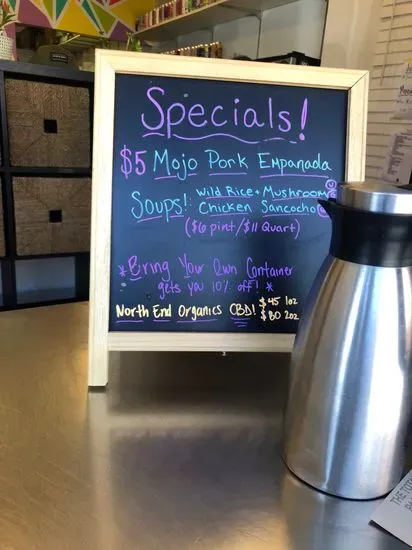 Specials!
$5 Mojo Pork Empanada
Soups! Wild Rice + Mushroom
Chicken Sancocho
($6 pint/$11 Quart)
*Bring Your Own Container
gets you 10% off! *
North End Organics CBD! $45 1oz
$80 2oz